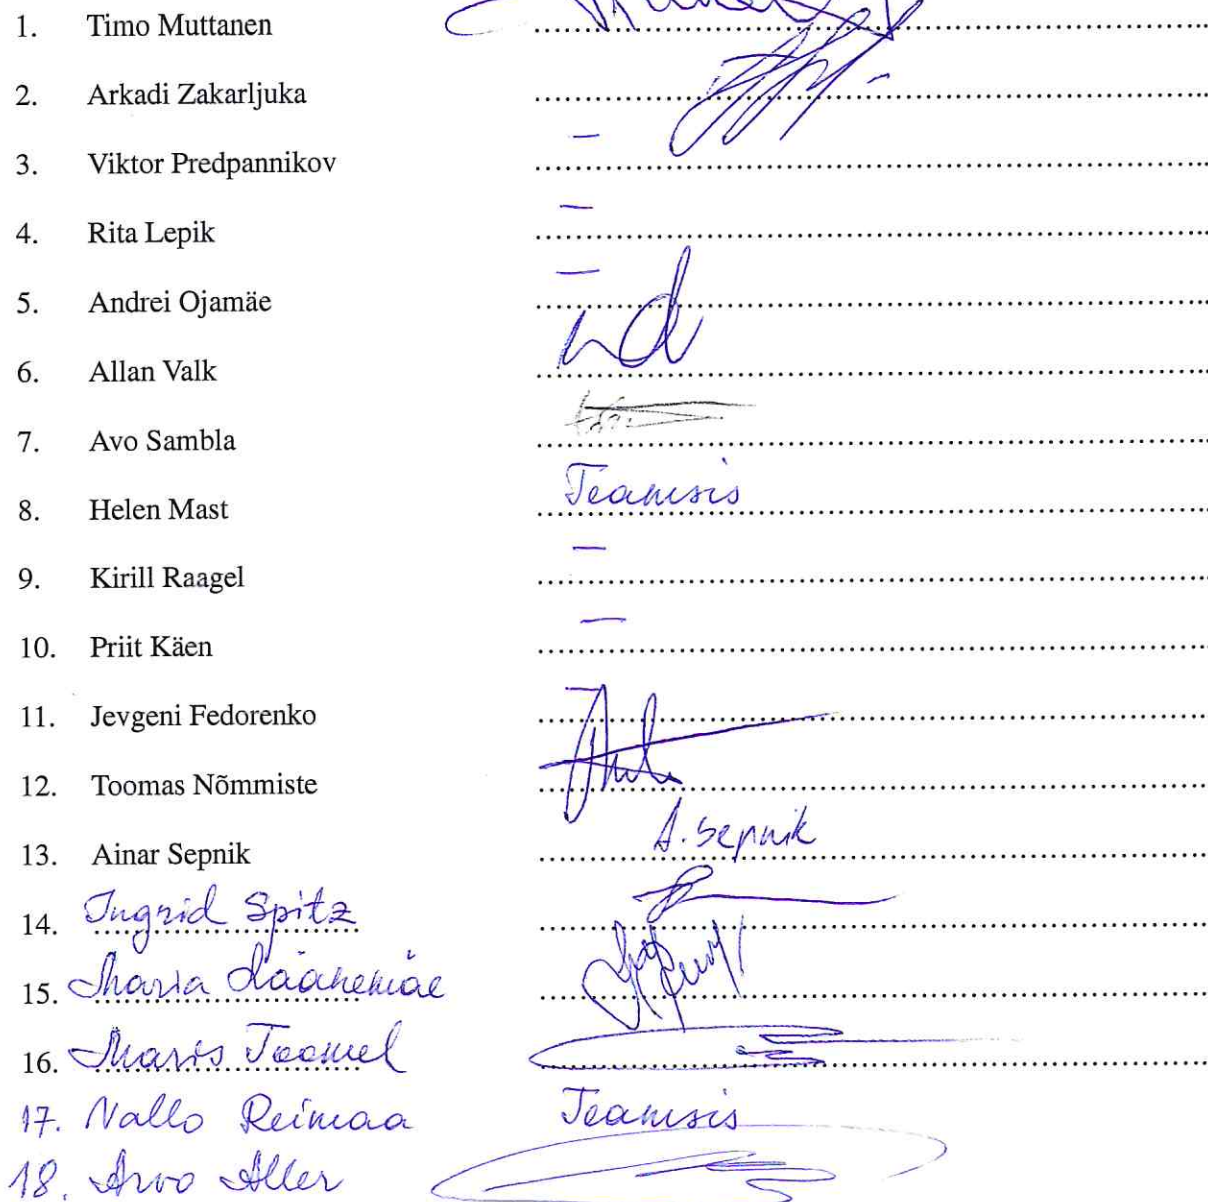 1. Timo Muttanen
2. Arkadi Zakarljuka
3. Viktor Predpannikov –
4. Rita Lepik –
5. Andrei Ojamäe –
6. Allan Valk
7. Avo Sambla
8. Helen Mast Teamsis
9. Kirill Raagel –
10. Priit Käen –
11. Jevgeni Fedorenko
12. Toomas Nõmmiste
13. Ainar Sepnik A. Sepnik
14. Ingrid Spitz
15. Maria Läänemäe
16. Maris Toomel
17. Nallo Reimaa Teamsis
18. Arvo Aller